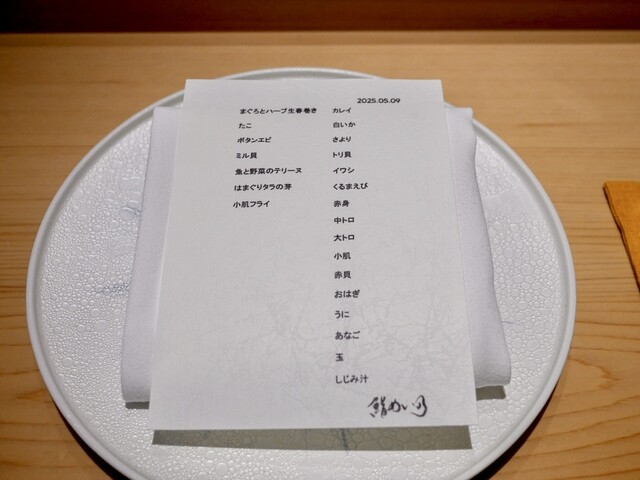 2025.05.09
まぐろとハーブ生春巻き
たこ
ボタンエビ
ミル貝
魚と野菜のテリーヌ
はまぐりタラの芽
小肌フライ
カレイ
白いか
さより
トリ貝
イワシ
くるまえび
赤身
中トロ
大トロ
小肌
赤貝
おはぎ
うに
あなご
玉
しじみ汁